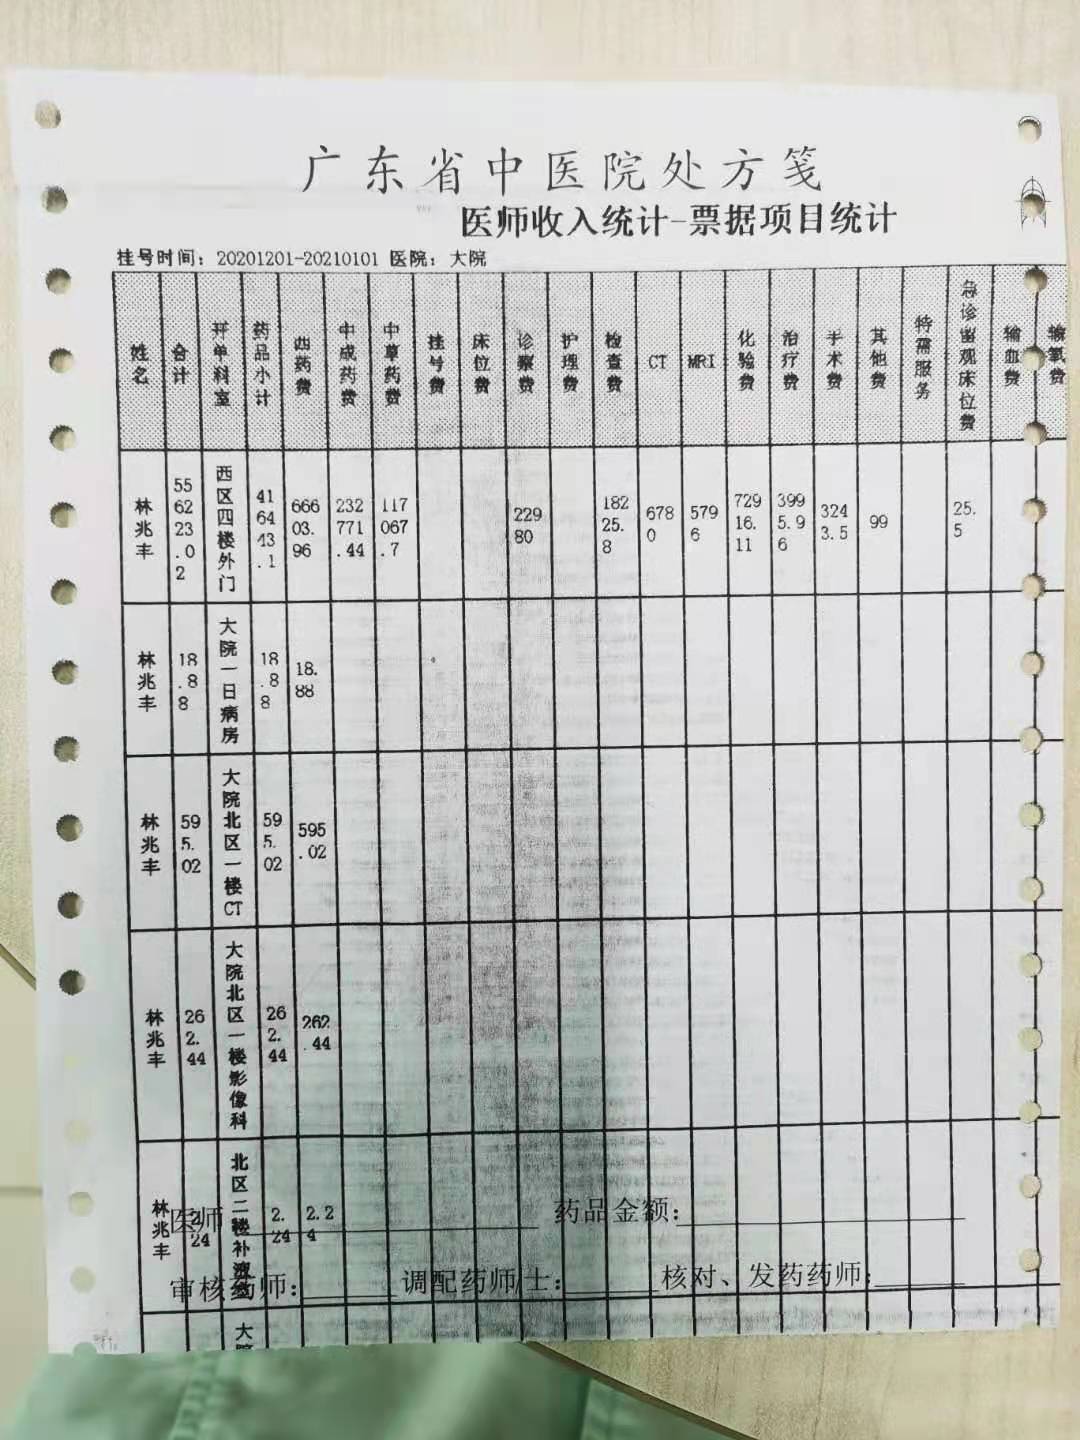 广东省中医院处方笺
医师收入统计-票据项目统计
挂号时间：20201201-20210101 医院：大院
姓名 合计 开单科室 药品小计 西药费 中成药费 中草药费 挂号费 床位费 诊察费 护理费 检查费 CT MRI 化验费 治疗费 手术费 其他费 特需服务 急诊留观床位费 输血费 输氧费
林兆丰 556223.02 西区四楼外门 416443.1 66603.96 232771.44 117067.7 22980 18225.8 6780 5796 72916.11 3995.96 3243.5 99 25.5
林兆丰 18.88 大院一日病房 18.88 18.88
林兆丰 595.02 大院北区一楼CT 595.02 595.02
林兆丰 262.44 大院北区一楼影像科 262.44 262.44
林兆丰 2.24 北区二楼补液 2.24 2.24
医师 药品金额：
审核药师： 调配药师/士： 核对、发药药师：
大院